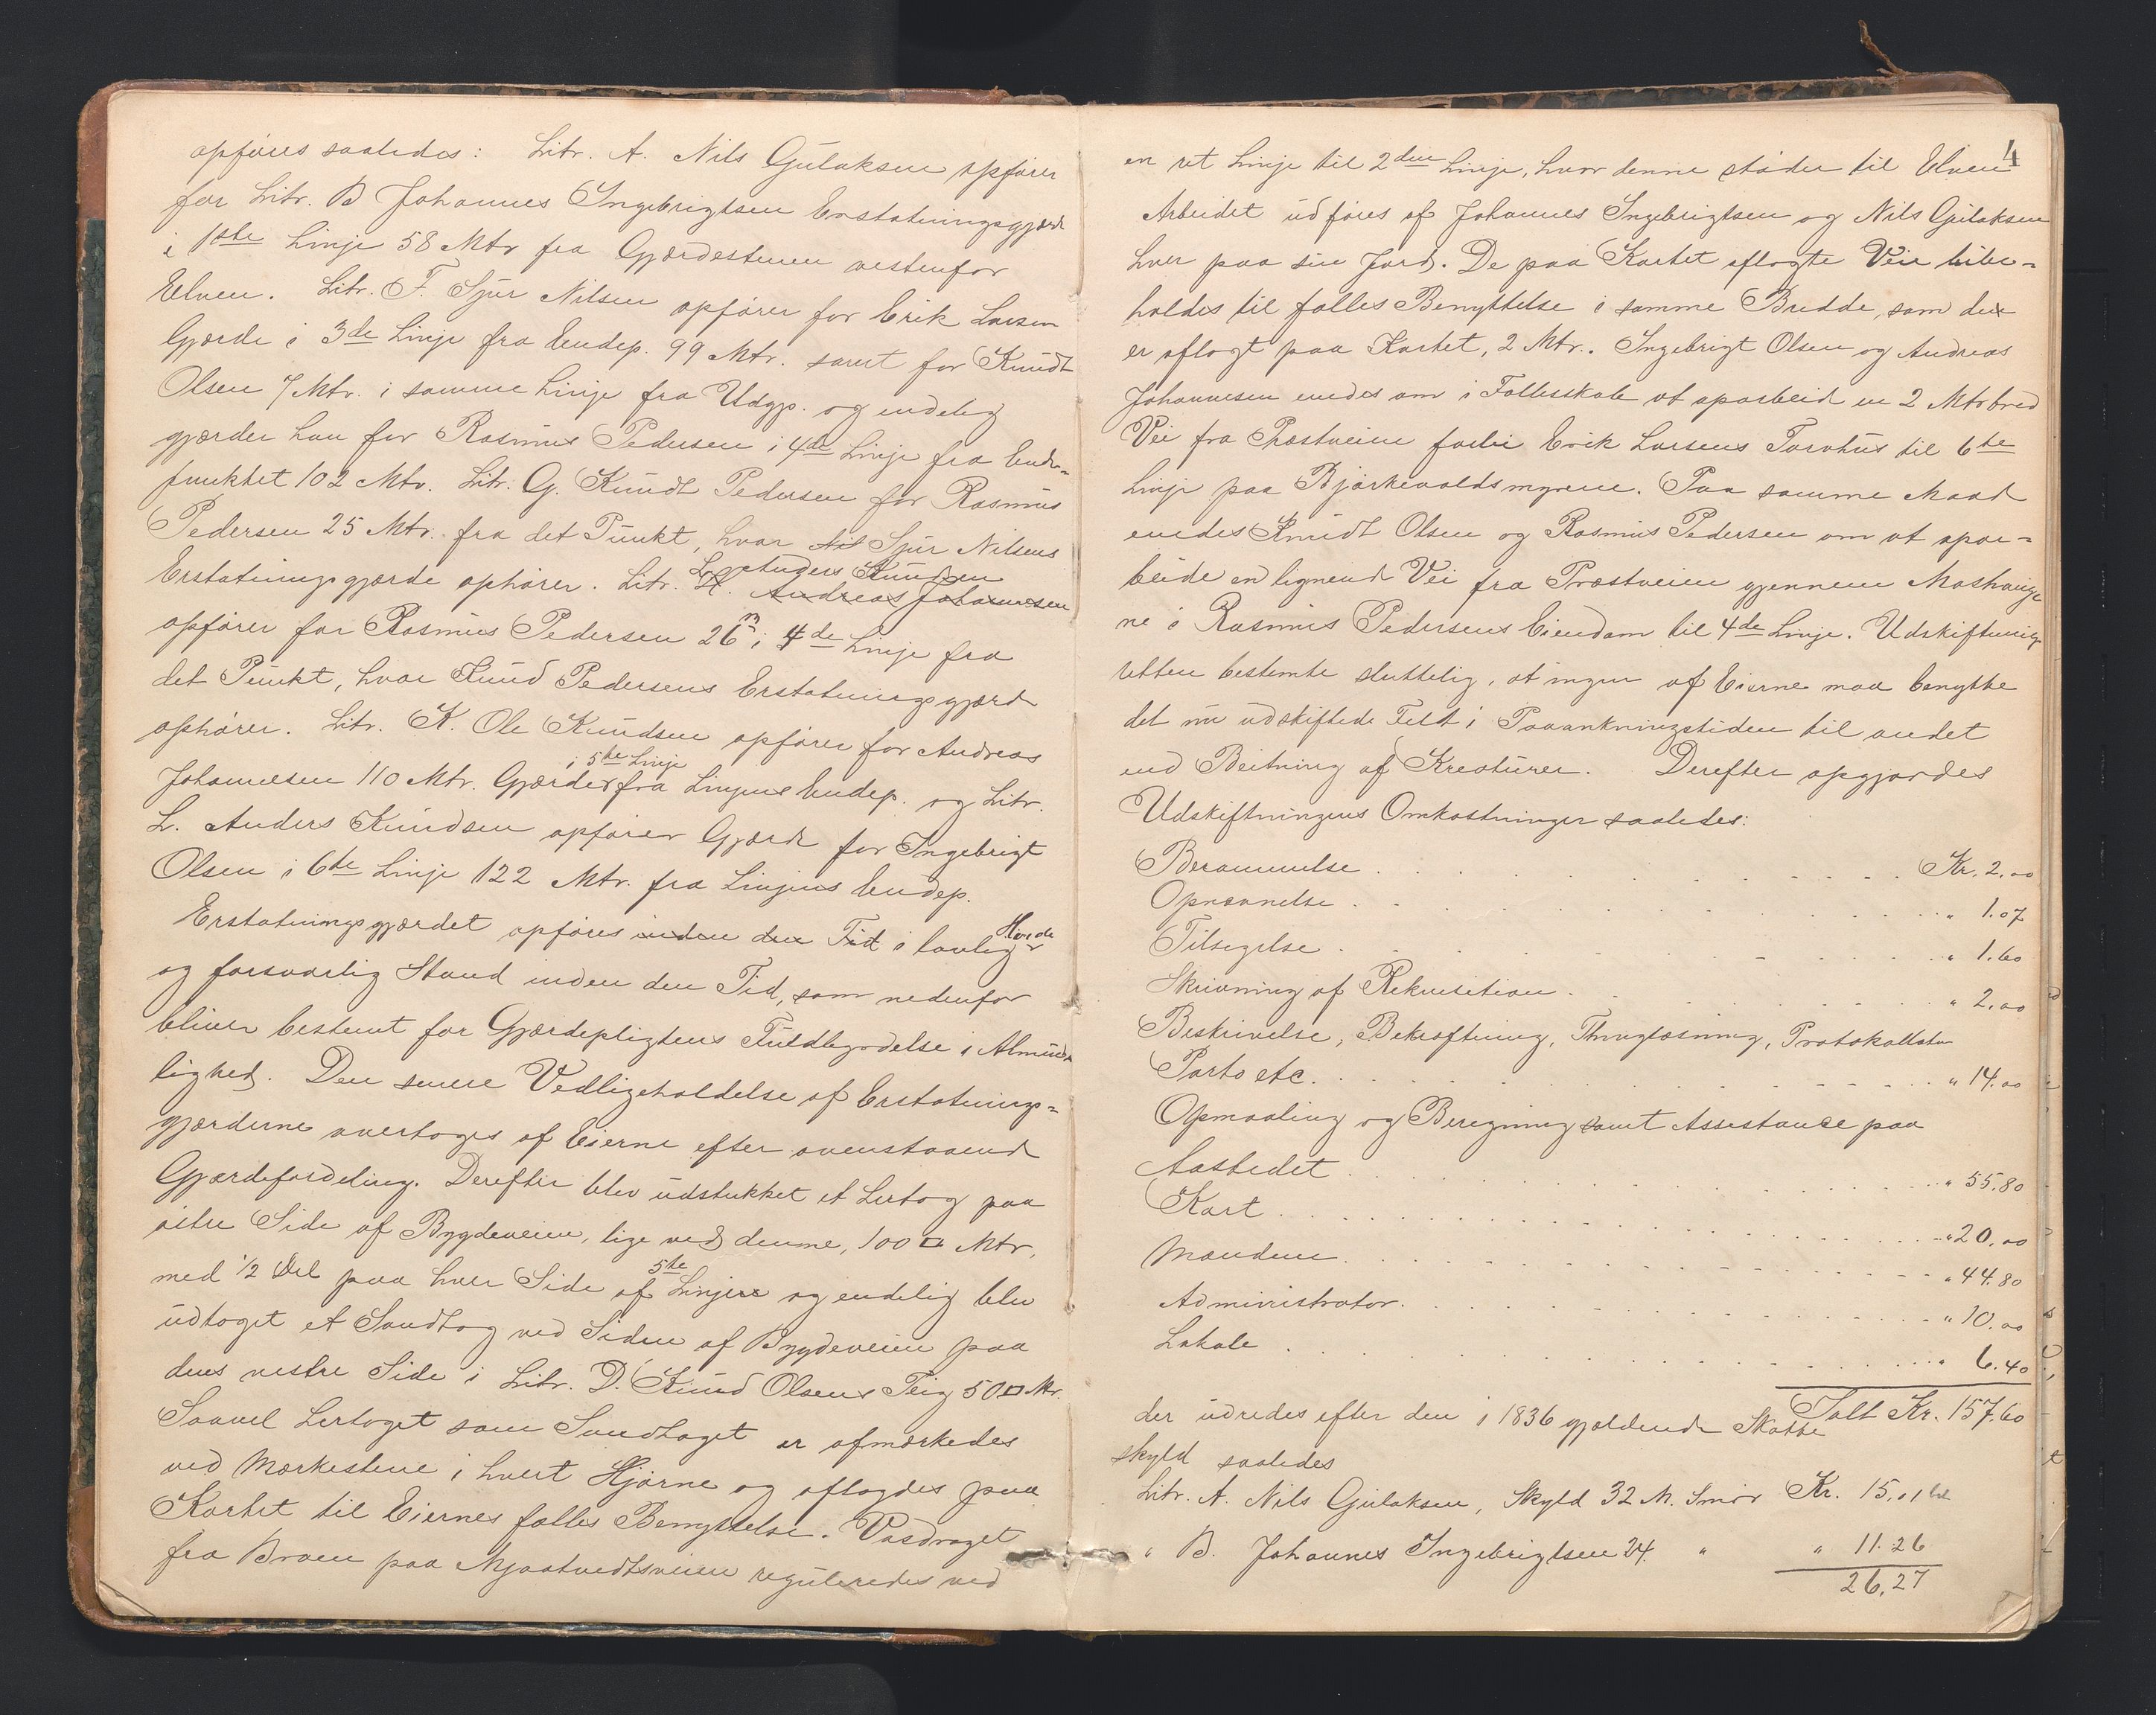 opføres saaledes: Litr. A. Nils Gulaksen opfører
for Litr. B Johannes Ingebrigtsen Erstatningsgjærde
i 1ste Linje 58 Mtr fra Gjærdestenen vestenfor
Elven. Litr. F. Sjur Nilsen opfører for Erik Larsen
Gjærde i 3de Linje fra Endep. 99 Mtr. samt for Knudt
Olsen 7 Mtr. i samme Linje fra Udgp. og endelig
gjærder han for Rasmus Pedersen i 4de Linje fra Ende-
punktet 102 Mtr. Litr. G. Knudt Pedersen for Rasmus
Pedersen 25 Mtr. fra det Punkt, hvor Sjur Nilsens
L. Anders Knudsen
Erstatningsgjærde ophører. Litr. H. Andreas Johannesen
opfører for Rasmus Pedersen 26 m i 4de Linje fra
det Punkt, hvor Knud Pedersens Erstatningsgjærde
ophører. Litr. K. Ole Knudsen opfører for Andreas
i 5te Linje
Johannesen 110 Mtr. Gjærde fra Linjens Endep. og Litr.
L. Anders Knudsen opfører Gjærde for Ingebrigt
Olsen i 6te Linje 122 Mtr. fra Linjens Endep.
Erstatningsgjærdet opføres inden den Tid i lovlig Høide
og forsvarlig Stand inden den Tid, som nedenfor
bliver bestemt for Gjærdepligtens Fuldbyrdelse i Alminde
lighed. Den senere Vedligeholdelse af Erstatnings-
gjærderne overtoges af Eierne efter ovenstaaende
Gjærdefordeling. Derefter blev udstukket et Lertag paa
østre Side af Bygdeveien, lige ved denne, 100 □ Mtr,
5te
med 1/2 Del paa hver Side af Linjen og endelig blev
udtaget et Sandtag ved Siden af Bygdeveien paa
dens vestre Side i Litr. D. Knud Olsens Teig 50 □ Mtr.
Saavel Lertaget som Sandtaget er afmærkedes
ved Mærkestene i hvert Hjørne og aflagdes paa
Kartet til Eiernes fælles Benyttelse. Vasdraget
fra Broen paa Mjaatvedtsveien reguleredes ved
4
en ret Linje til 2den Linje, hvor denne støder til Elven
Arbeidet udføres af Johannes Ingebrigtsen og Nils Gulaksen
hver paa sin Jord. De paa Kartet aflagte Veie bibe-
holdes til fælles Benyttelse i samme Bredde, som der
er aflagt paa Kartet, 2 Mtr. Ingebrigt Olsen og Andreas
Johannesen enedes om i Fællesskab at oparbeide en 2 Mtr bred
Vei fra Præstveien forbi Erik Larsens Torvhus til 6te
Linje paa Bjørkevoldsmyrene. Paa samme Maade
enedes Knudt Olsen og Rasmus Pedersen om at opar-
beide en lignende Vei fra Præstveien gjennem
ne i Rasmus Pedersens Eiendom til 4de Linje. Udskiftnings
retten bestemte sluttelig, at ingen af Eierne maa benytte
det nu udskiftede Felt i Paaankningstiden til andet
end Beitning af Kreaturer. Derefter opgjordes
Udskiftningens Omkostninger saaledes:
Berammelse . . . Kr. 2.00
Opnævnelse . . . " 1.07
Tilsigelse . . . " 1.60
Skrivning af Rekvisition . . . " 2.00
Beskrivelse, Bekræftning, Thinglæsning, Protokollatn
Porto etc. . . . " 14.00
Opmaaling og Beregning samt Assistance paa
Aastedet . . . " 55.80
Kart . . . " 20.00
Mændene . . . " 44.80
Administrator . . . " 10.00
Lokale . . . " 6.40
Ialt Kr. 157.60
der udredes efter den i 1836 gjældende Skatte
skyld saaledes
Litr. A. Nils Gulaksen, Skyld 32 M. Smør Kr. 15,01
" B. Johannes Ingebrigtsen 24. " " 11.26
26,27